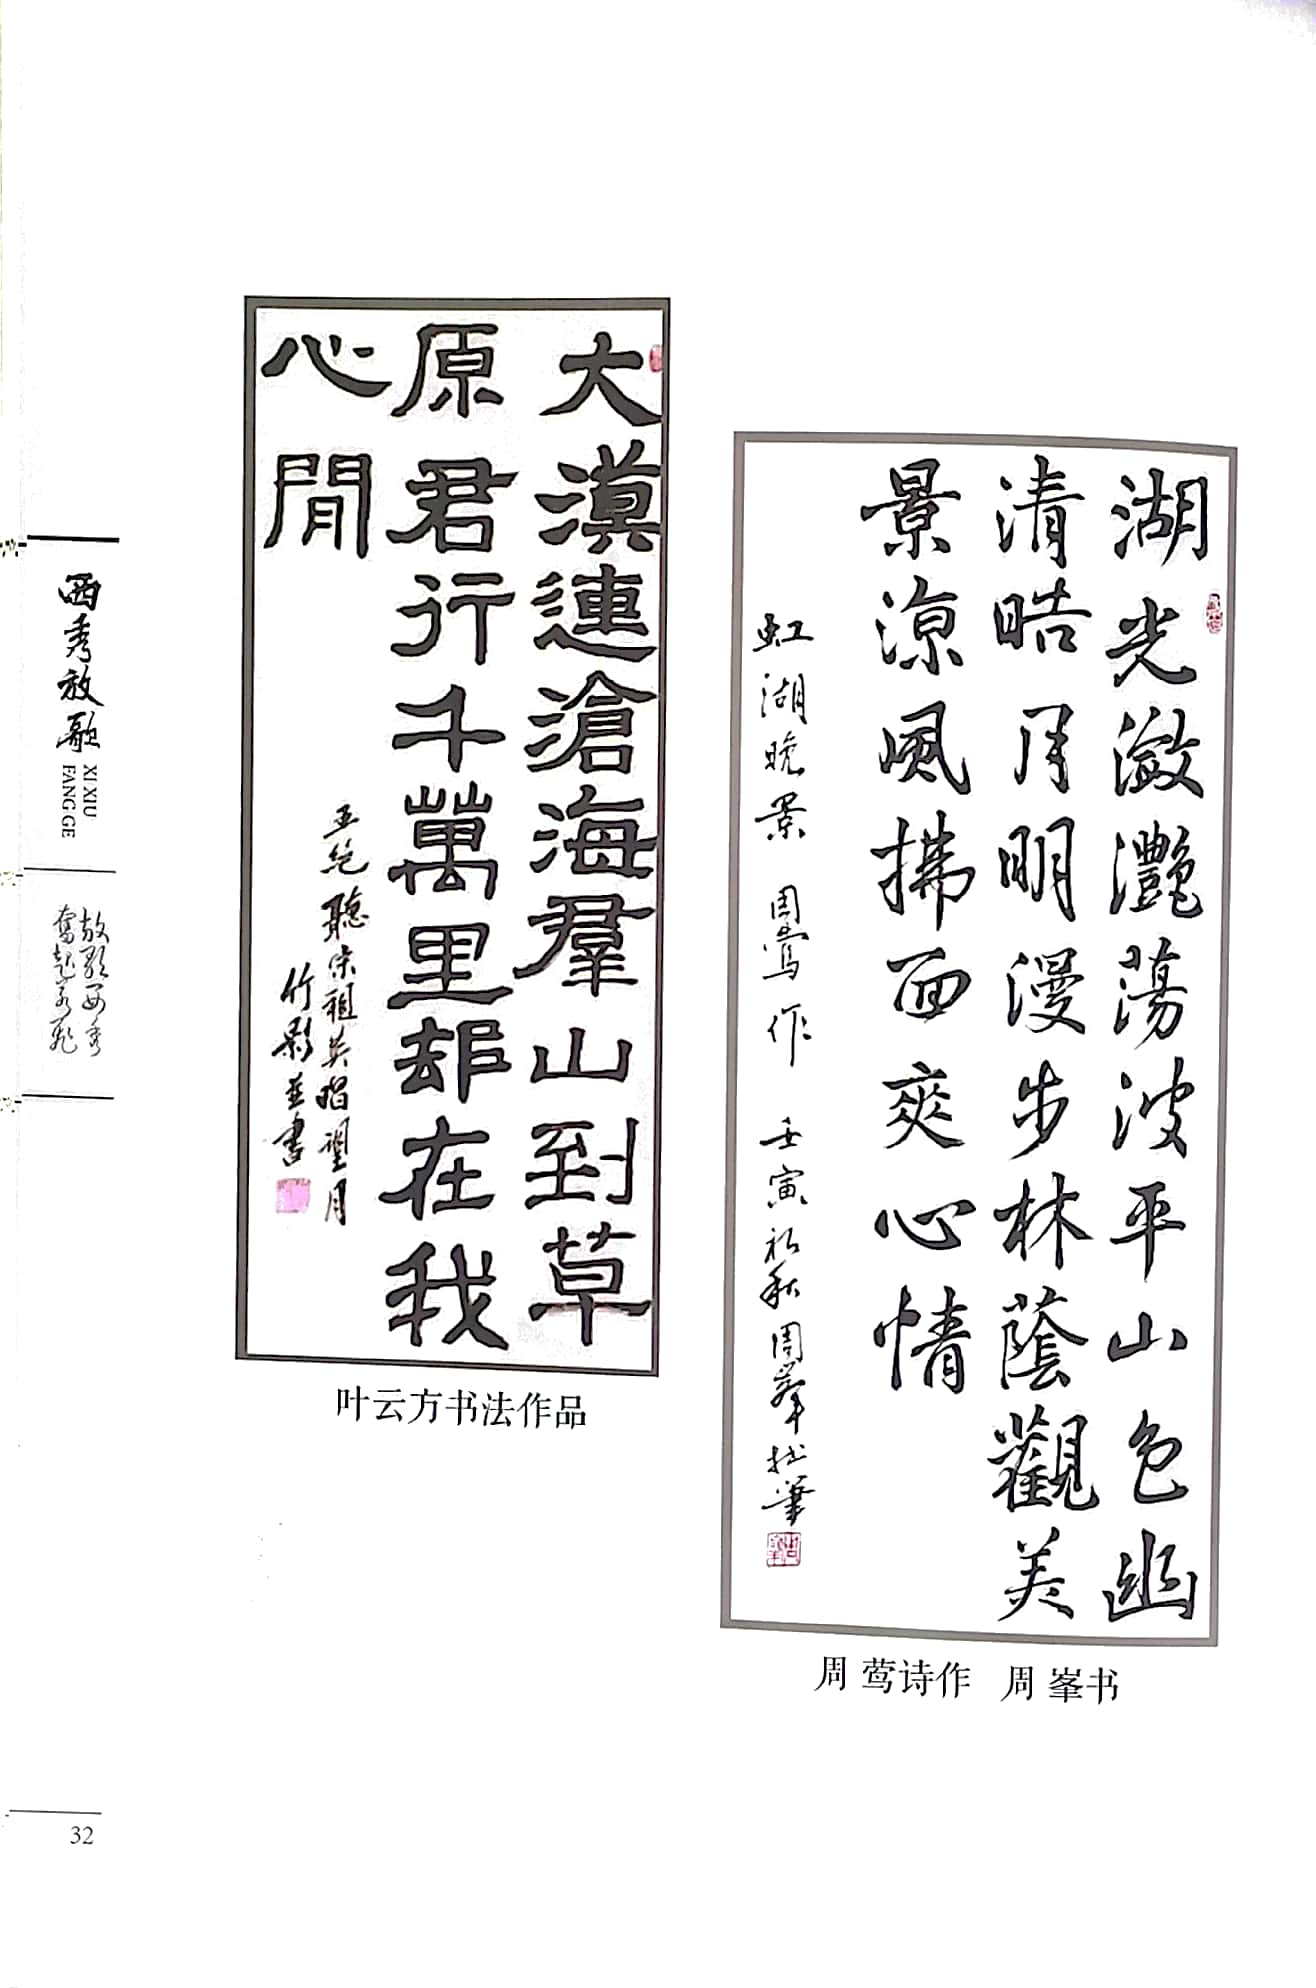 西秀放歌
XI XIU
FANG GE
放歌西秀
奮起高飛
大漠連滄海羣山到草
原君行千萬里却在我
心閒
五絕聽宋祖英唱望月
竹影並書
叶云方书法作品
湖光瀲灩蕩波平山色幽
清皓月明漫步林蔭觀美
景涼風拂面爽心情
虹湖晚景 周鶯作 壬寅初秋周峯拙筆
周 莺诗作 周 峯书
32